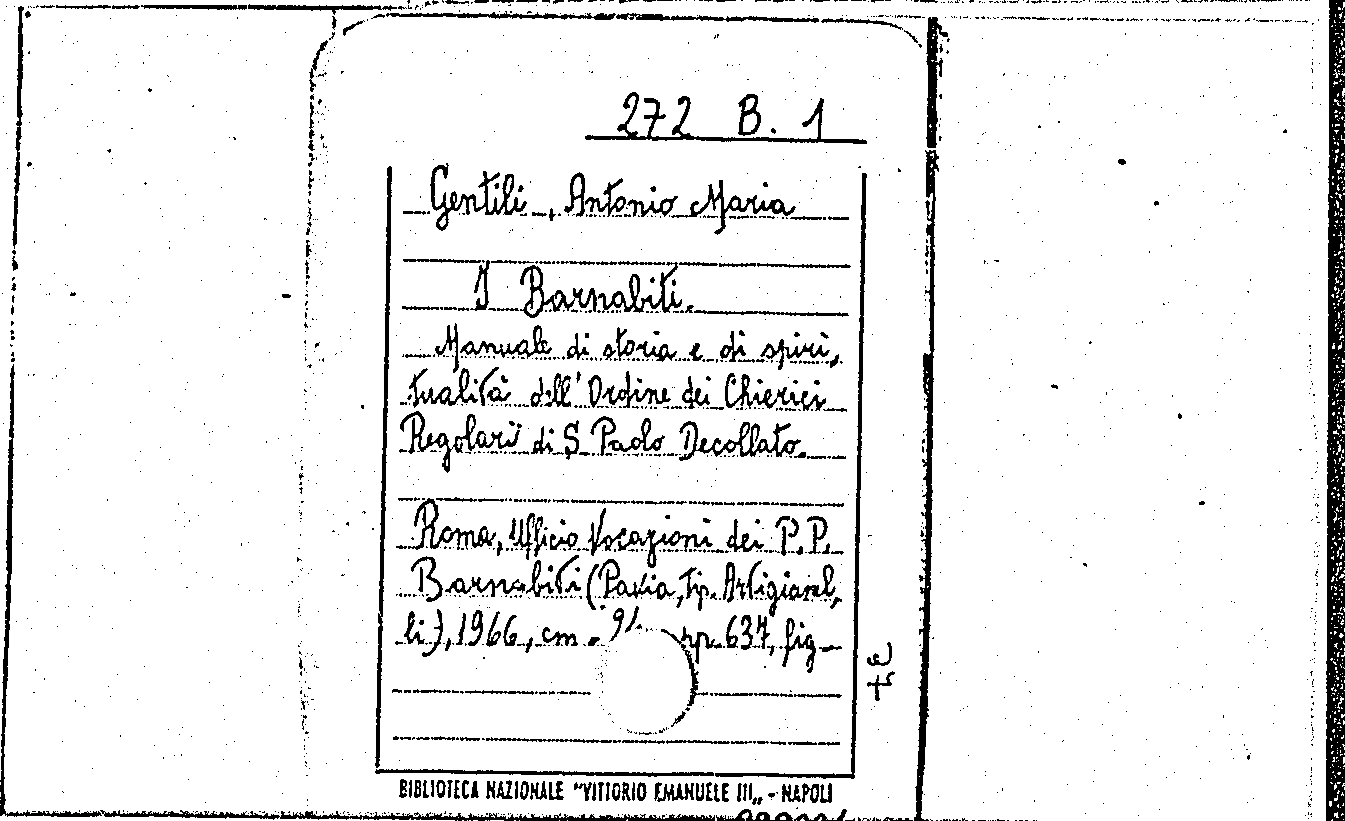 272 B. 1
Gentili, Antonio Maria
I Barnabiti.
Manuale di storia e di spiri,
tualità dell'Ordine dei Chierici
Regolari di S. Paolo Decollato.
Roma, Ufficio Vocazioni dei P.P.
Barnabiti (Pavia, Tip. Artigianel,
li), 1966, cm. pp. 637, fig.
BIBLIOTECA NAZIONALE "VITTORIO EMANUELE III„ - NAPOLI